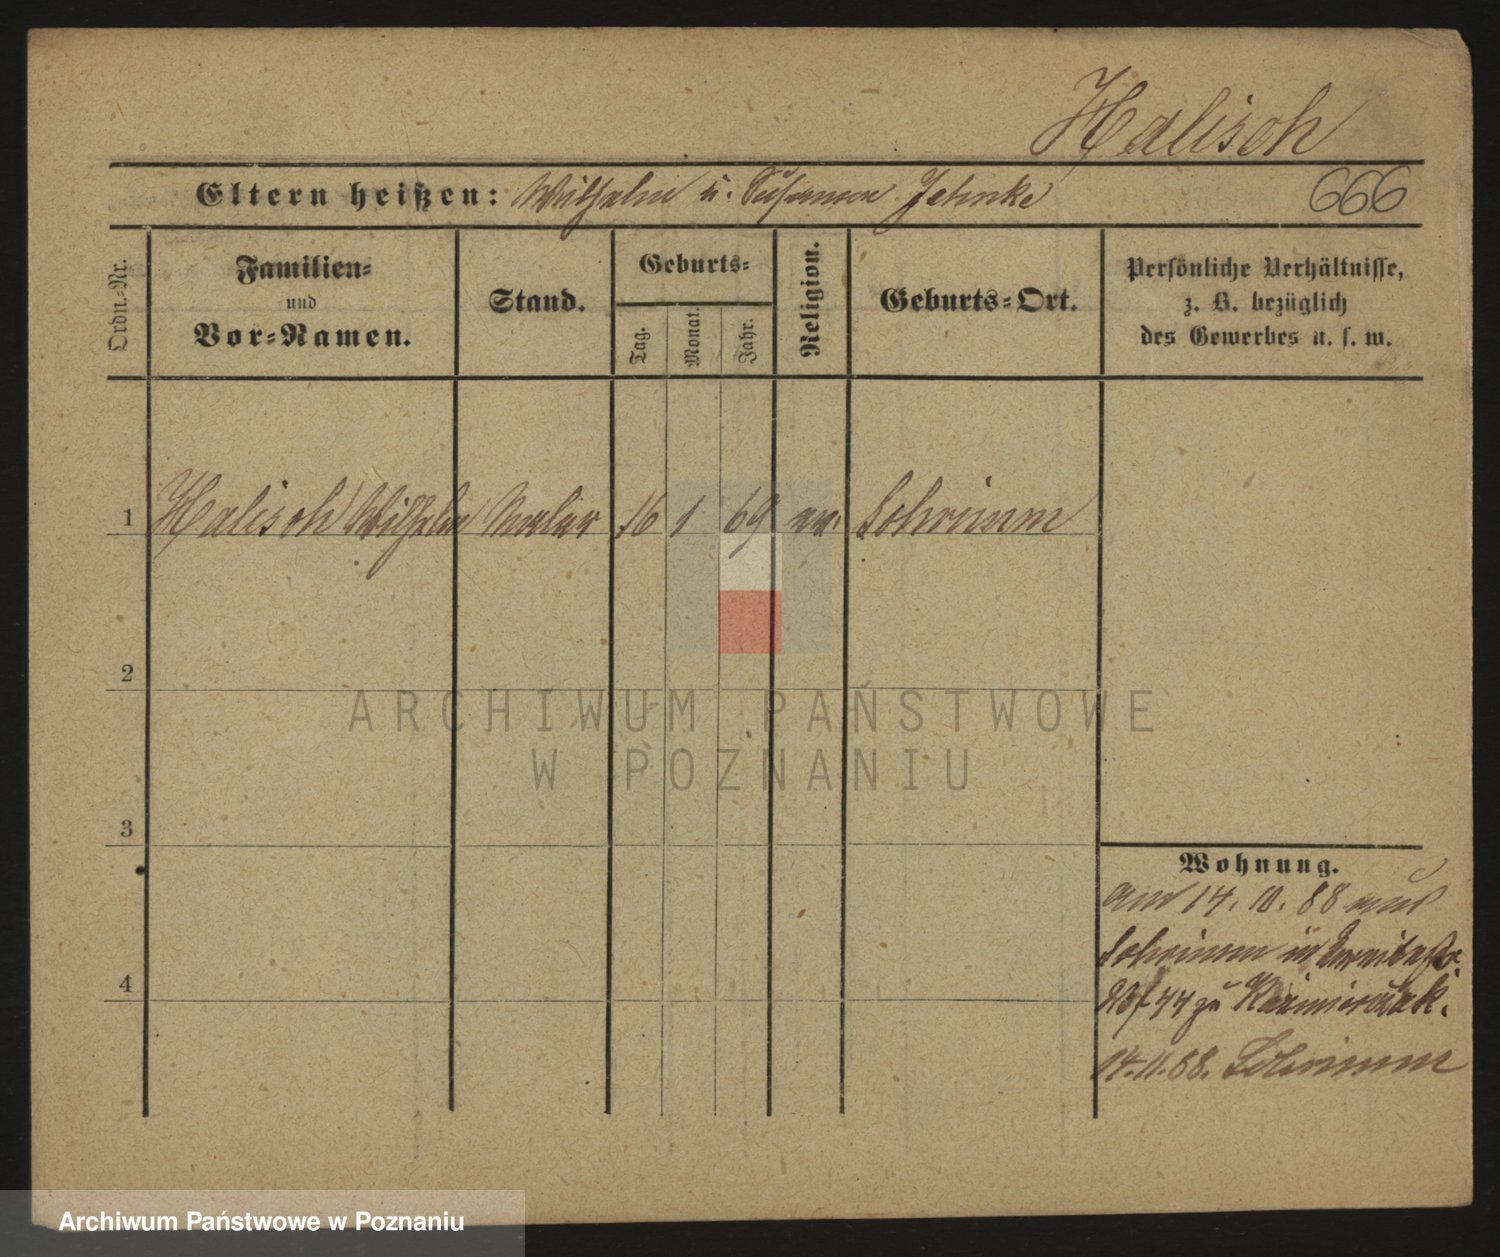 Halisch
Eltern heißen: Wilhelm u. Susanna Jahnke
666
Ordn.-Nr.
Familien-
und
Vor-Namen.
Stand.
Geburts-
Tag.
Monat.
Jahr.
Religion.
Geburts-Ort.
Persönliche Verhältnisse,
z. B. bezüglich
des Gewerbes u. s. w.
1 Halisch Wilhelm Maler 16 1 69 ev. Schrimm
2
3
4
Wohnung.
am 14. 10. 88 aus
Schrimm in
44 zu Kazmierczak.
14.11.88. Schrimm
ARCHIWUM PAŃSTWOWE
W POZNANIU
Archiwum Państwowe w Poznaniu